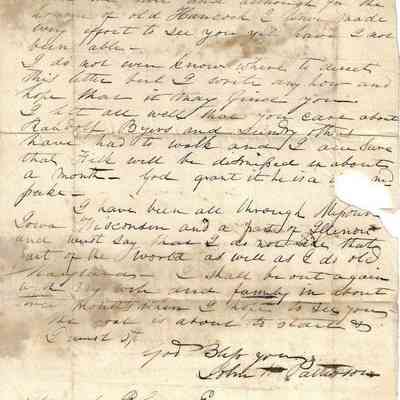 and although in the
of old Hancock I have made
every effort to see you yet have I not
been able -
I do not even know where to direct
this letter but I write any how and
hope that it may find you
I left all well that you care about
Randolf Byers and Sundry others
have had to walk and I am sure
that Fisk will be dismissed in about
a month - God grant it he is a
I have been all through Missouri
Iowa Wisconsin and a part of Illinois
and must say that I do not like that
part of the world as well as I do old
Maryland - I shall be out again
my wife and family in about
months when I hope to see you
The boat is about to start &
I must stop
God Bless you
John H Patterson